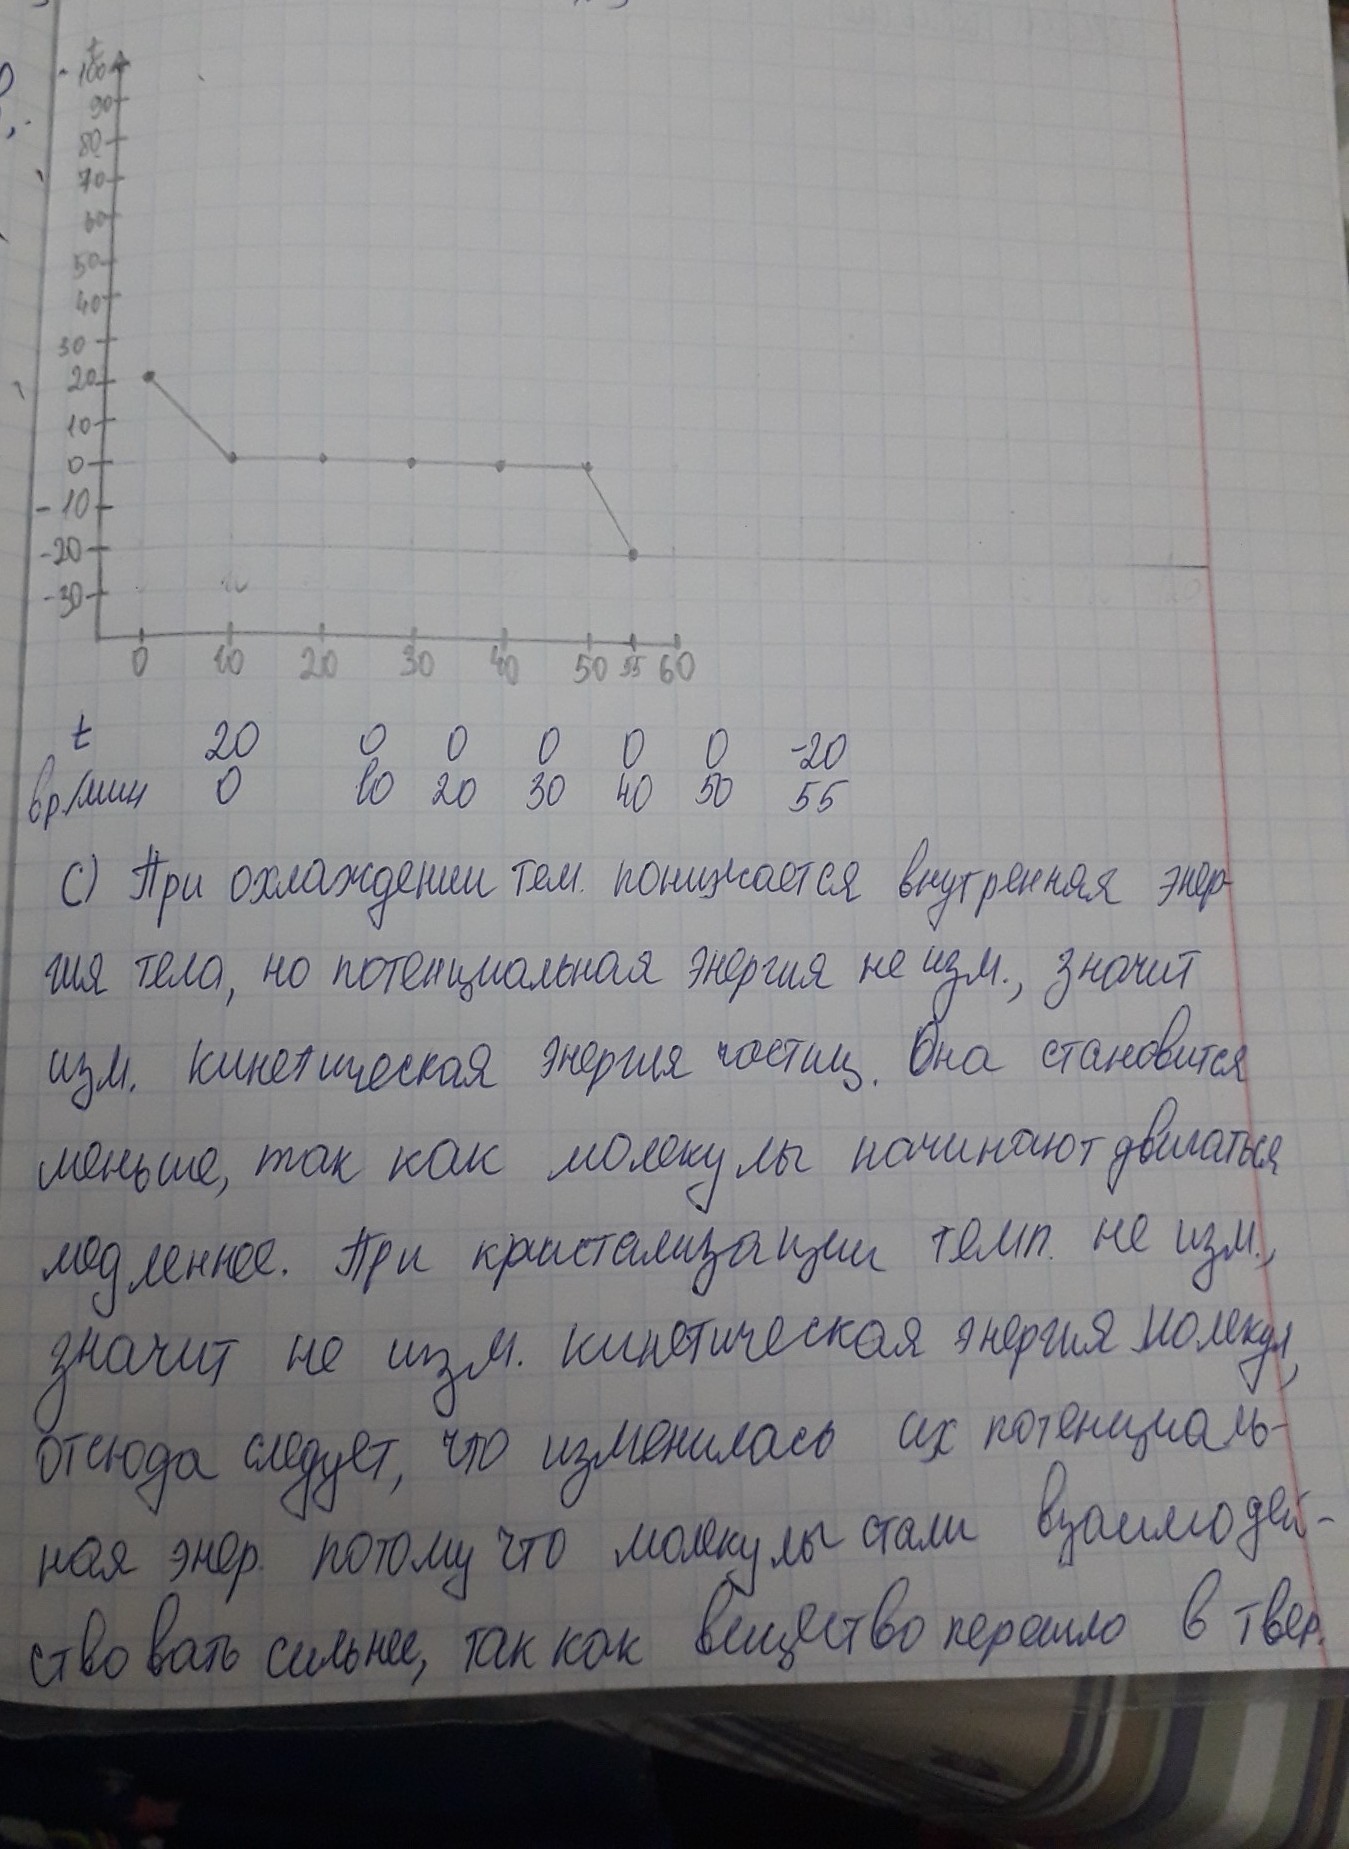 t
100
90
80
70
60
50
40
30
20
10
0
-10
-20
-30
0 10 20 30 40 50 55 60
t 20 0 0 0 0 0 -20
вр/мин 0 10 20 30 40 50 55
С) При охлаждении тем. понижается внутренная энер-
гия тела, но потенциальная энергия не изм., значит
изм. кинетическая энергия частиц. Она становится
меньше, так как молекулы начинают двигаться
медленнее. При кристализации темп. не изм.,
значит не изм. кинетическая энергия молекул,
отсюда следует, что изменилась их потенциаль-
ная энер. потому что молекулы стали взаимодей-
ствовать сильнее, так как вещество перешло в твер.